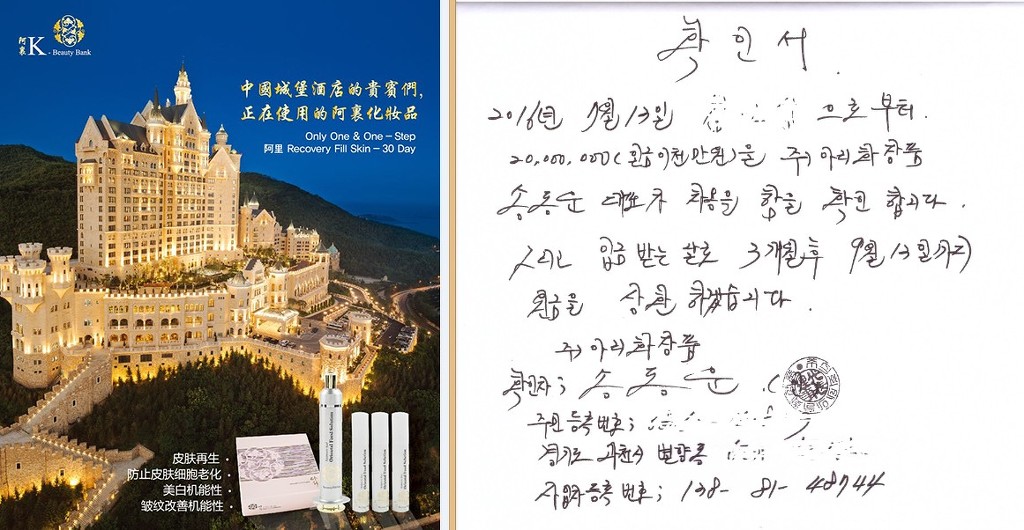 阿裏 K - Beauty Bank
中國城堡酒店的貴賓們,
正在使用的阿裏化妝品
Only One & One – Step
阿里 Recovery Fill Skin – 30 Day
Oriental Food Solution
皮肤再生 •
防止皮肤细胞老化 •
美白机能性 •
皱纹改善机能性 •
확인서.
2016년 9월 13일 으로부터.
20,000,000(현금이천만원)을 주) 아리화장품
송동순 대표가 차용을 함을 확인 합니다.
그리고 입금 받는 날로 3개월후 9월 13일까지
현금을 상환 하겠습니다.
주) 아리화장품
확인자; 송동순 (
주민등록번호;
경기도 과천시 별양동
사업자등록번호; 138- 81- 48744